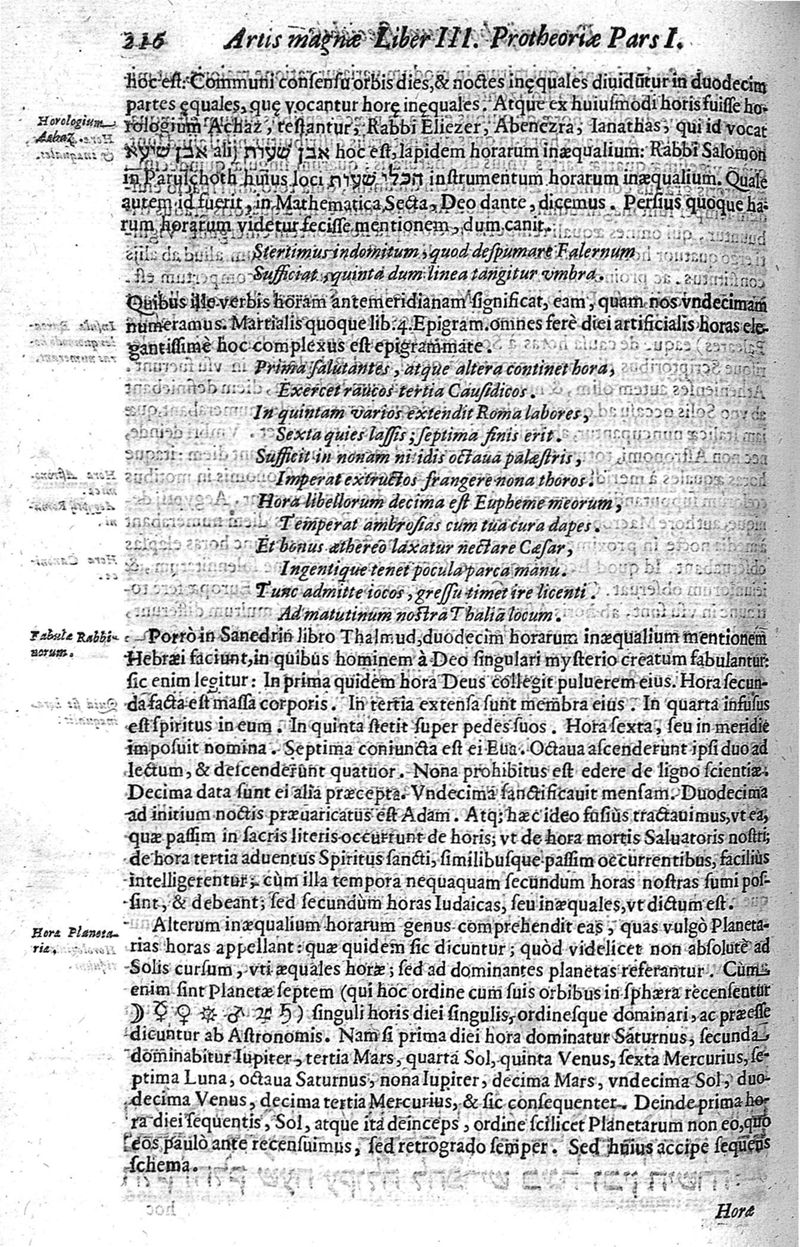 216 Artis magnæ Liber III. Protheoriæ Pars I.
hoc est. Communi consensu orbis dies, & noctes inęquales diuidũtur in duodecim
partes ęquales, quę vocantur horę inęquales. Atque ex huiusmodi horis fuisse ho-
Horologium
Achaz.
rologium Achaz, testantur, Rabbi Eliezer, Abenezra, Ianathas, qui id vocat
אבן שעיא alij אבן שעות hoc est, lapidem horarum inæqualium: Rabbi Salomon
in Paruschoth huius loci הכלי שעות instrumentum horarum inæqualium. Quale
autem id fuerit, in Mathematica Secta, Deo dante, dicemus. Persius quoque ha-
rum horarum videtur fecisse mentionem, dum canit.
Stertimus indomitum, quod despumare Falernum
Sufficiat, quinta dum linea tangitur vmbra.
Quibus ille verbis horam antemeridianam significat, eam, quam nos vndecimam
numeramus. Martialis quoque lib. 4. Epigram. omnes ferè diei artificialis horas ele-
gantissimè hoc complexus est epigrammate.
Prima salutantes, atque altera continet hora,
Exercet raucos tertia Causidicos.
In quintam varios extendit Roma labores,
Sexta quies lassis; septima finis erit.
Sufficit in nonam nitidis octaua palæstris,
Imperat extructos frangere nona thoros:
Hora libellorum decima est Eupheme meorum,
Temperat ambrosias cum tua cura dapes.
Et bonus æthereo laxatur nectare Cæsar,
Ingentique tenet pocula parca manu.
Tunc admitte iocos, gressu timet ire licenti.
Ad matutinum nostra Thalia locum.
Fabulæ Rabbi-
norum.
Porrò in Sanedrin libro Thalmud, duodecim horarum inæqualium mentionem
Hebræi faciunt, in quibus hominem à Deo singulari mysterio creatum fabulantur:
sic enim legitur: In prima quidem hora Deus collegit puluerem eius. Hora secun-
da facta est massa corporis. In tertia extensa sunt membra eius. In quarta infusus
est spiritus in eum. In quinta stetit super pedes suos. Hora sexta, seu in meridie
imposuit nomina. Septima coniuncta est ei Eua. Octaua ascenderunt ipsi duo ad
lectum, & descenderunt quatuor. Nona prohibitus est edere de ligno scientiæ.
Decima data sunt ei alia præcepta. Vndecima sanctificauit mensam. Duodecima
ad initium noctis præuaricatus est Adam. Atq; hæc ideo fusiùs tractauimus, vt ea,
quæ passim in sacris literis occurrunt de horis; vt de hora mortis Saluatoris nostri;
de hora tertia aduentus Spiritus sancti, similibusque passim occurrentibus, faciliùs
intelligerentur; cùm illa tempora nequaquam secundum horas nostras sumi pos-
sint, & debeant; sed secundùm horas Iudaicas, seu inæquales, vt dictum est.
Horæ Planeta-
riæ.
Alterum inæqualium horarum genus comprehendit eas, quas vulgò Planeta-
rias horas appellant: quæ quidem sic dicuntur; quòd videlicet non absolutè ad
Solis cursum, vti æquales horæ; sed ad dominantes planetas referantur. Cùm
enim sint Planetæ septem (qui hoc ordine cum suis orbibus in sphæra recensentur
☽ ☿ ♀ ☼ ♂ ♃ ♄) singuli horis diei singulis, ordinesque dominari, ac præesse
dicuntur ab Astronomis. Nam si prima diei hora dominatur Saturnus, secunda
dominabitur Iupiter, tertia Mars, quarta Sol, quinta Venus, sexta Mercurius, se-
ptima Luna, octaua Saturnus, nona Iupiter, decima Mars, vndecima Sol, duo-
decima Venus, decima tertia Mercurius, & sic consequenter. Deinde prima ho-
ra diei sequentis, Sol, atque ita deinceps, ordine scilicet Planetarum non eo, quo
eos paulò ante recensuimus, sed retrogrado semper. Sed huius accipe sequens
schema.
Horæ